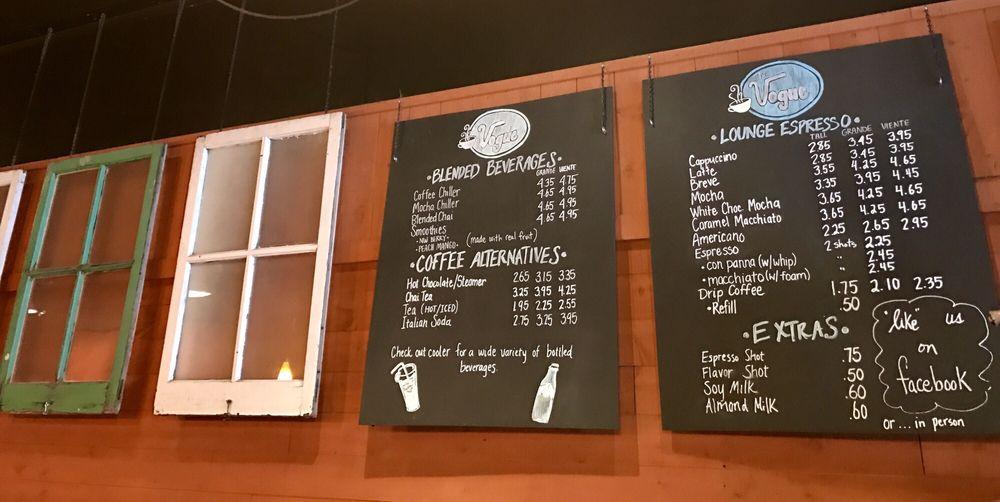 The Vogue
•BLENDED BEVERAGES•
GRANDE VIENTE
Coffee Chiller 4.35 4.75
Mocha Chiller 4.65 4.95
Blended Chai 4.65 4.95
Smoothies 4.65 4.95
-NW BERRY-
-PEACH MANGO- (made with real fruit)
•COFFEE ALTERNATIVES•
Hot Chocolate/Steamer 2.65 3.15 3.35
Chai Tea 3.25 3.95 4.25
Tea (HOT/ICED) 1.95 2.25 2.55
Italian Soda 2.75 3.25 3.95
Check out cooler for a wide variety of bottled
beverages.
The Vogue
•LOUNGE ESPRESSO•
TALL GRANDE VIENTE
Cappuccino 2.85 3.45 3.95
Latte 2.85 3.45 3.95
Breve 3.55 4.25 4.65
Mocha 3.35 3.95 4.45
White Choc Mocha 3.65 4.25 4.65
Caramel Macchiato 3.65 4.25 4.65
Americano 2.25 2.65 2.95
Espresso 2 shots 2.25
•con panna (w/whip) " 2.45
•macchiato (w/foam) " 2.45
Drip Coffee 1.75 2.10 2.35
•Refill .50
•EXTRAS•
Espresso Shot .75
Flavor Shot .50
Soy Milk .60
Almond Milk .60
"like" us
on
facebook
or... in person